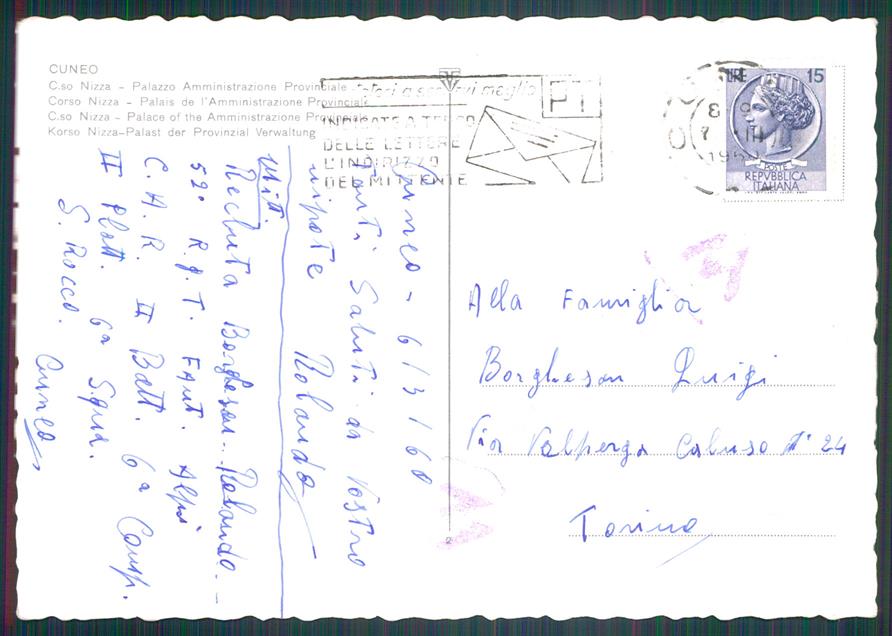 CUNEO
C.so Nizza - Palazzo Amministrazione Provinciale
Corso Nizza - Palais de l'Amministrazione Provinciale
C.so Nizza - Palace of the Amministrazione Provinciale
Korso Nizza-Palast der Provinzial Verwaltung
meglio
PT
INDICATE A TERGO
DELLE LETTERE
L'INDIRIZZO
DEL MITTENTE
LIRE 15
POSTE
REPVBBLICA
ITALIANA
Cuneo - 6/3/60
Tanti Saluti da Vostro
nipote Rolando
Mitt.
Recluta Borghesan Rolando -
52° R.g.T. Fant. Alpi
C.A.R. II Batt. 6a Comp.
II Plot. 6a Squa.
S. Rocco.
Cuneo
Alla Famiglia
Borghesan Luigi
Via Valperga Caluso N° 24
Torino
2